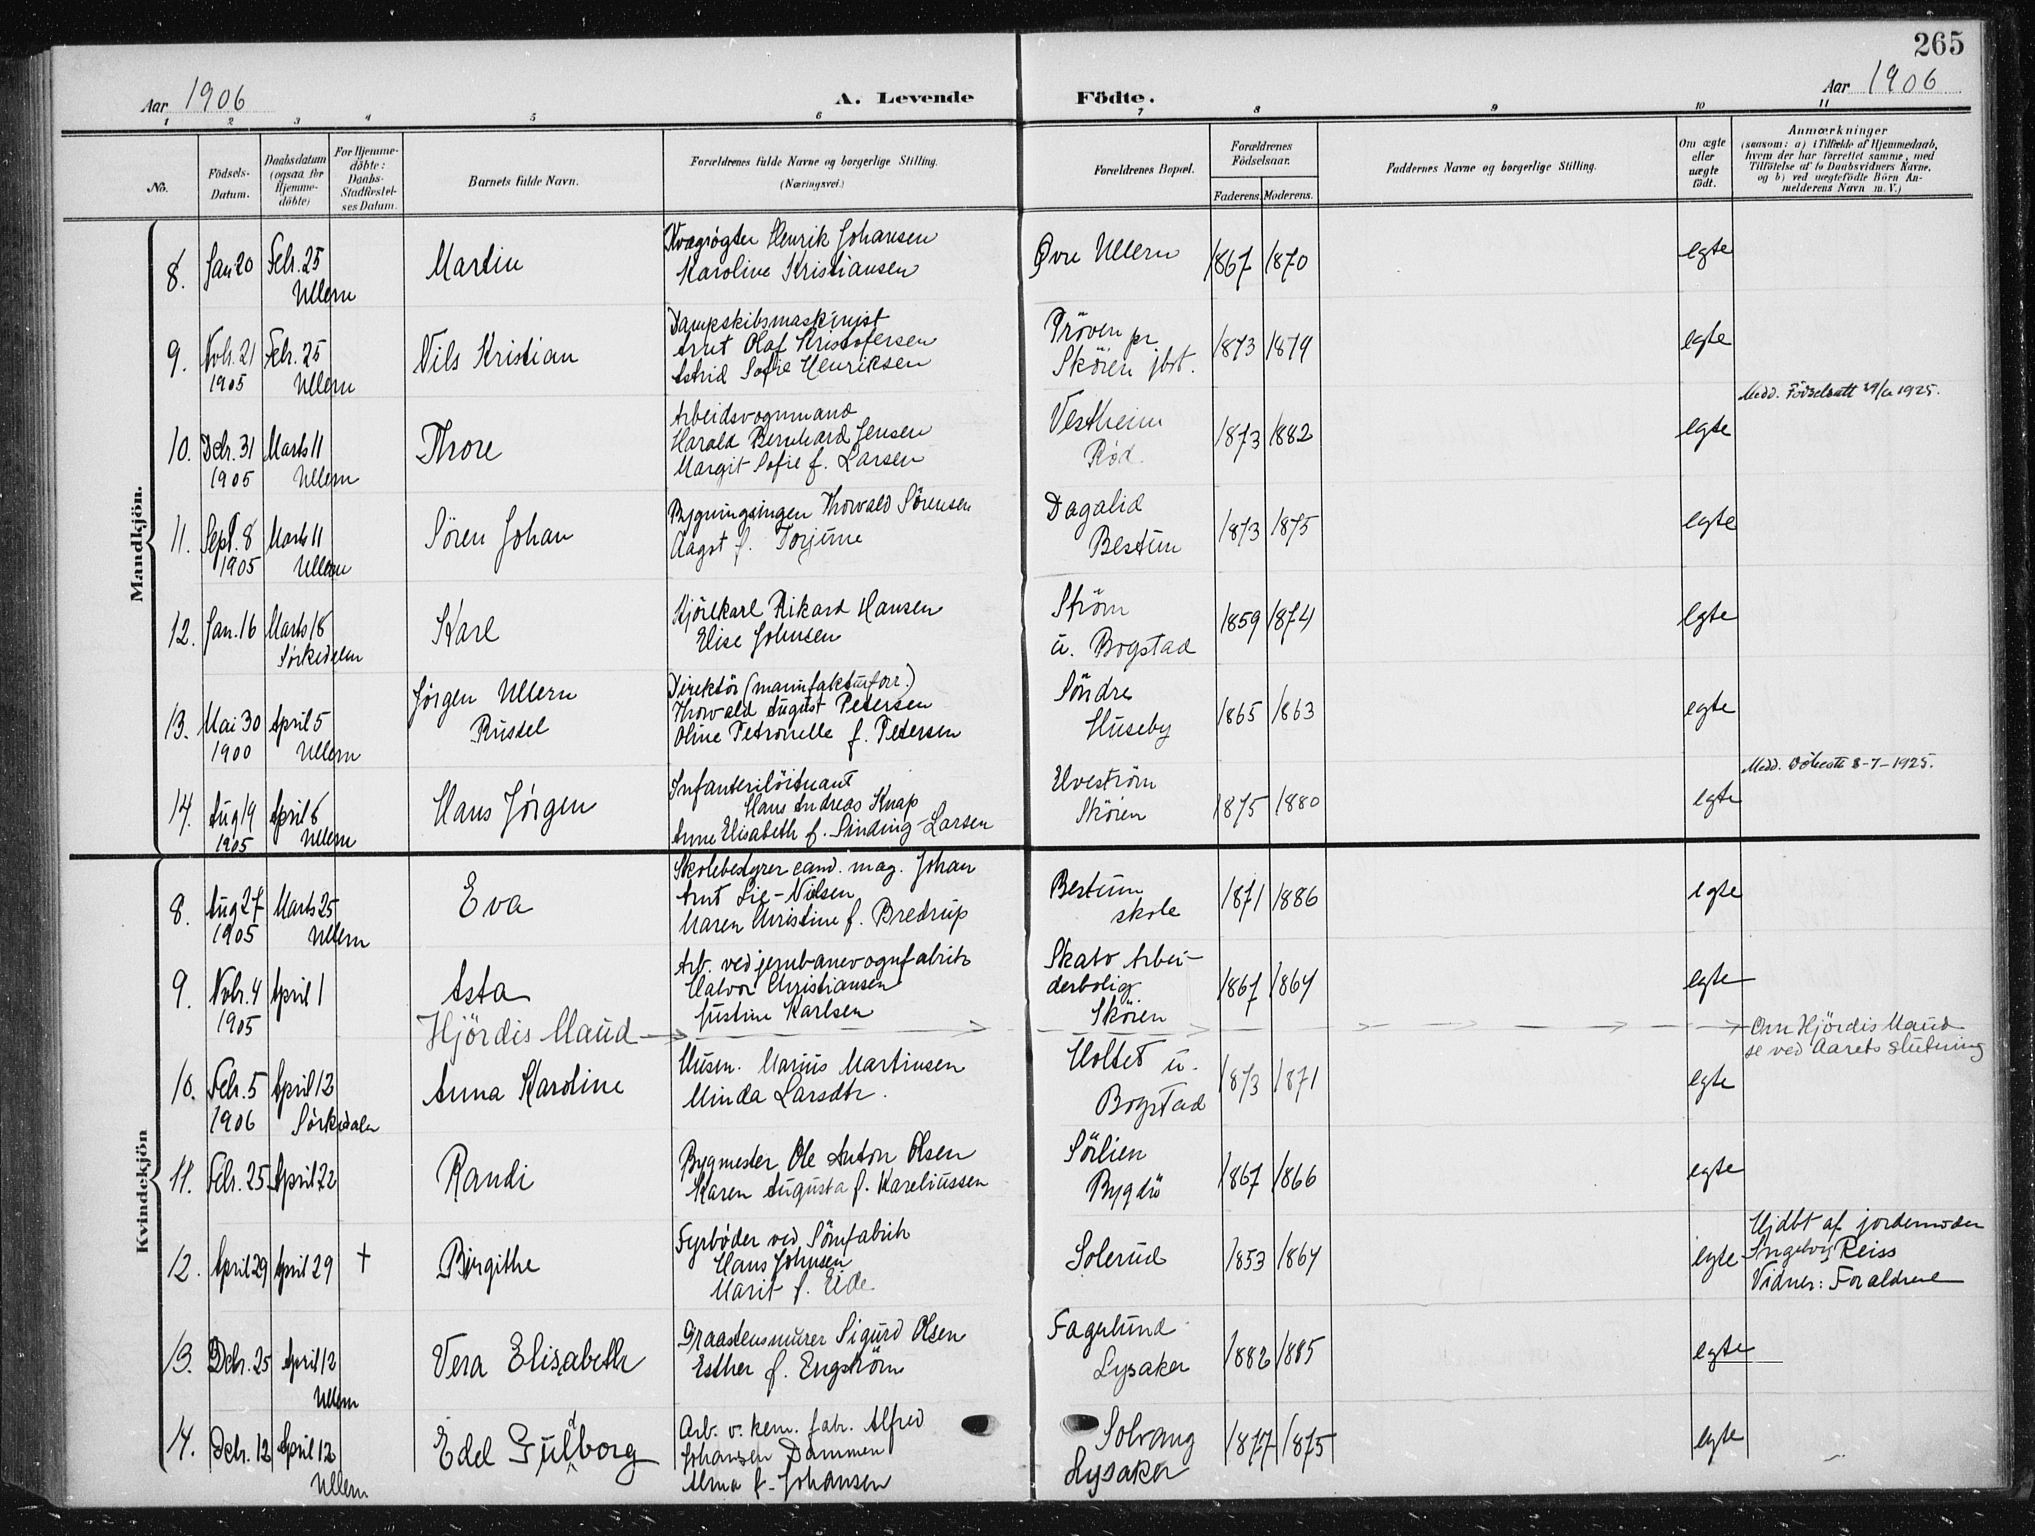 265
Aar 1906
A. Levende Födte.
Aar 1906
1 2 3 4 5 6 7 8 9 10 11
No.
Födsels-Datum.
Daabsdatum (ogsaa for Hjemme-döbte)
For Hjemme-döbte: Daabs-Stadfæstel-ses Datum.
Barnets fulde Navn.
Forældrenes fulde Navne og borgerlige Stilling. (Næringsvei.)
Forældrenes Bopæl.
Forældrenes Födselsaar.
Faderens. Moderens.
Faddernes Navne og borgerlige Stilling.
Om ægte eller uægte født.
Anmærkninger
(saasom: a) i Tilfælde af Hjemmedaab,
hvem der har forrettet samme, med
Tilföielse af to Daabsvidners Navne,
og b) ved uægtefödte Börn An-
melderens Navn m. V.)
Mandkjön.
8. Jan 20 Febr. 25 Ullern Martin
Kvægrøgter Henrik Johansen
Karoline Kristiansen
Øvre Ullern 1867 1870 egte
9. Novbr. 21 1905 Febr. 25 Ullern Nils Kristian
Dampskibsmaskinist
Arnt Olaf Kristofersen
Astrid Sofie Henriksen
Prøven pr.
Skøien jbst. 1873 1879 egte
Medd. Fødselsatt 1925.
10. Debr. 31 1905 Marts 11 Ullern Thore
Arbeidsvognmand
Harald Bernhard Jensen
Margit Sofie f. Larsen
Vestheim
Rød. 1873 1882 egte
11. Sept. 8 1905 Marts 11 Ullern Søren Johan
Bygningsingen Thorvald Sörensen
Aagot f. Torjune
Dagalid
Bestun 1873 1875 egte
12. Jan. 16 Marts 18 Sørkedalen Karl
Kjörekarl Rikard Hansen
Elise Johnsen
Ström
u. Bogstad 1859 1874 egte
13. Mai 30 1900 April 5 Ullern Jørgen Ullern
Russel
Direktör (manufakturforr.)
Thorvald August Petersen
Oline Petronelle f. Petersen
Söndre
Huseby 1865 1863 egte
Medd. Döbeatt 8-7-1925.
14. Aug 19 1905 April 6 Ullern Hans Jørgen
Infanteriløitnant
Hans Andreas Knap
Anne Elisabeth f. Sinding-Larsen
Elveström
Skøien 1875 1880 egte
Kvindekjön
8. Aug 27 1905 Marts 25 Ullern Eva
Skolebestyrer cand. mag. Johan
Arnt Lie-Nilsen
Maren Christine f. Bredrup
Bestum
skole 1871 1886 egte
9. Novbr. 4 1905 April 1 Asta
Arb. ved jernbanevognfabrik
Halvor Christiansen
Justine Karlsen
Skabo Arbei-
derbolig
Skøien 1867 1864 egte
Hjördis Maud
Om Hjördis Maud
se ved Aarets slutning
10. Febr. 5 1906 April 12 Sørkedalen Anna Karoline
Husm. Marius Martinsen
Minda Larsdtr.
Holtet u.
Bogstad 1873 1871 egte
11. Febr. 25 April 22 Randi
Bygmester Ole Anton Olsen
Karen Augusta f. Kareliussen
Sörlien
Bygdö 1867 1866 egte
12. April 29 April 29 † Birgithe
Fyrbøder ved Sömfabrik
Hans Johnsen
Marit f. Eide
Solerud 1853 1864 egte
Hjdbt af jordemoder
Ingeborg Reiss
Vidner: Forældrene
13. Debr. 25 April 12 Ullern Vera Elisabeth
Graastensmurer Sigurd Olsen
Esther f. Engström
Fagerlund
Lysaker 1882 1885 egte
14. Debr. 12 April 12 Ullern Edel Guldborg
Arb. v. kem. fabr. Alfred
Johansen Dammen
Alma f. Johansen
Solvang
Lysaker 1877 1875 egte